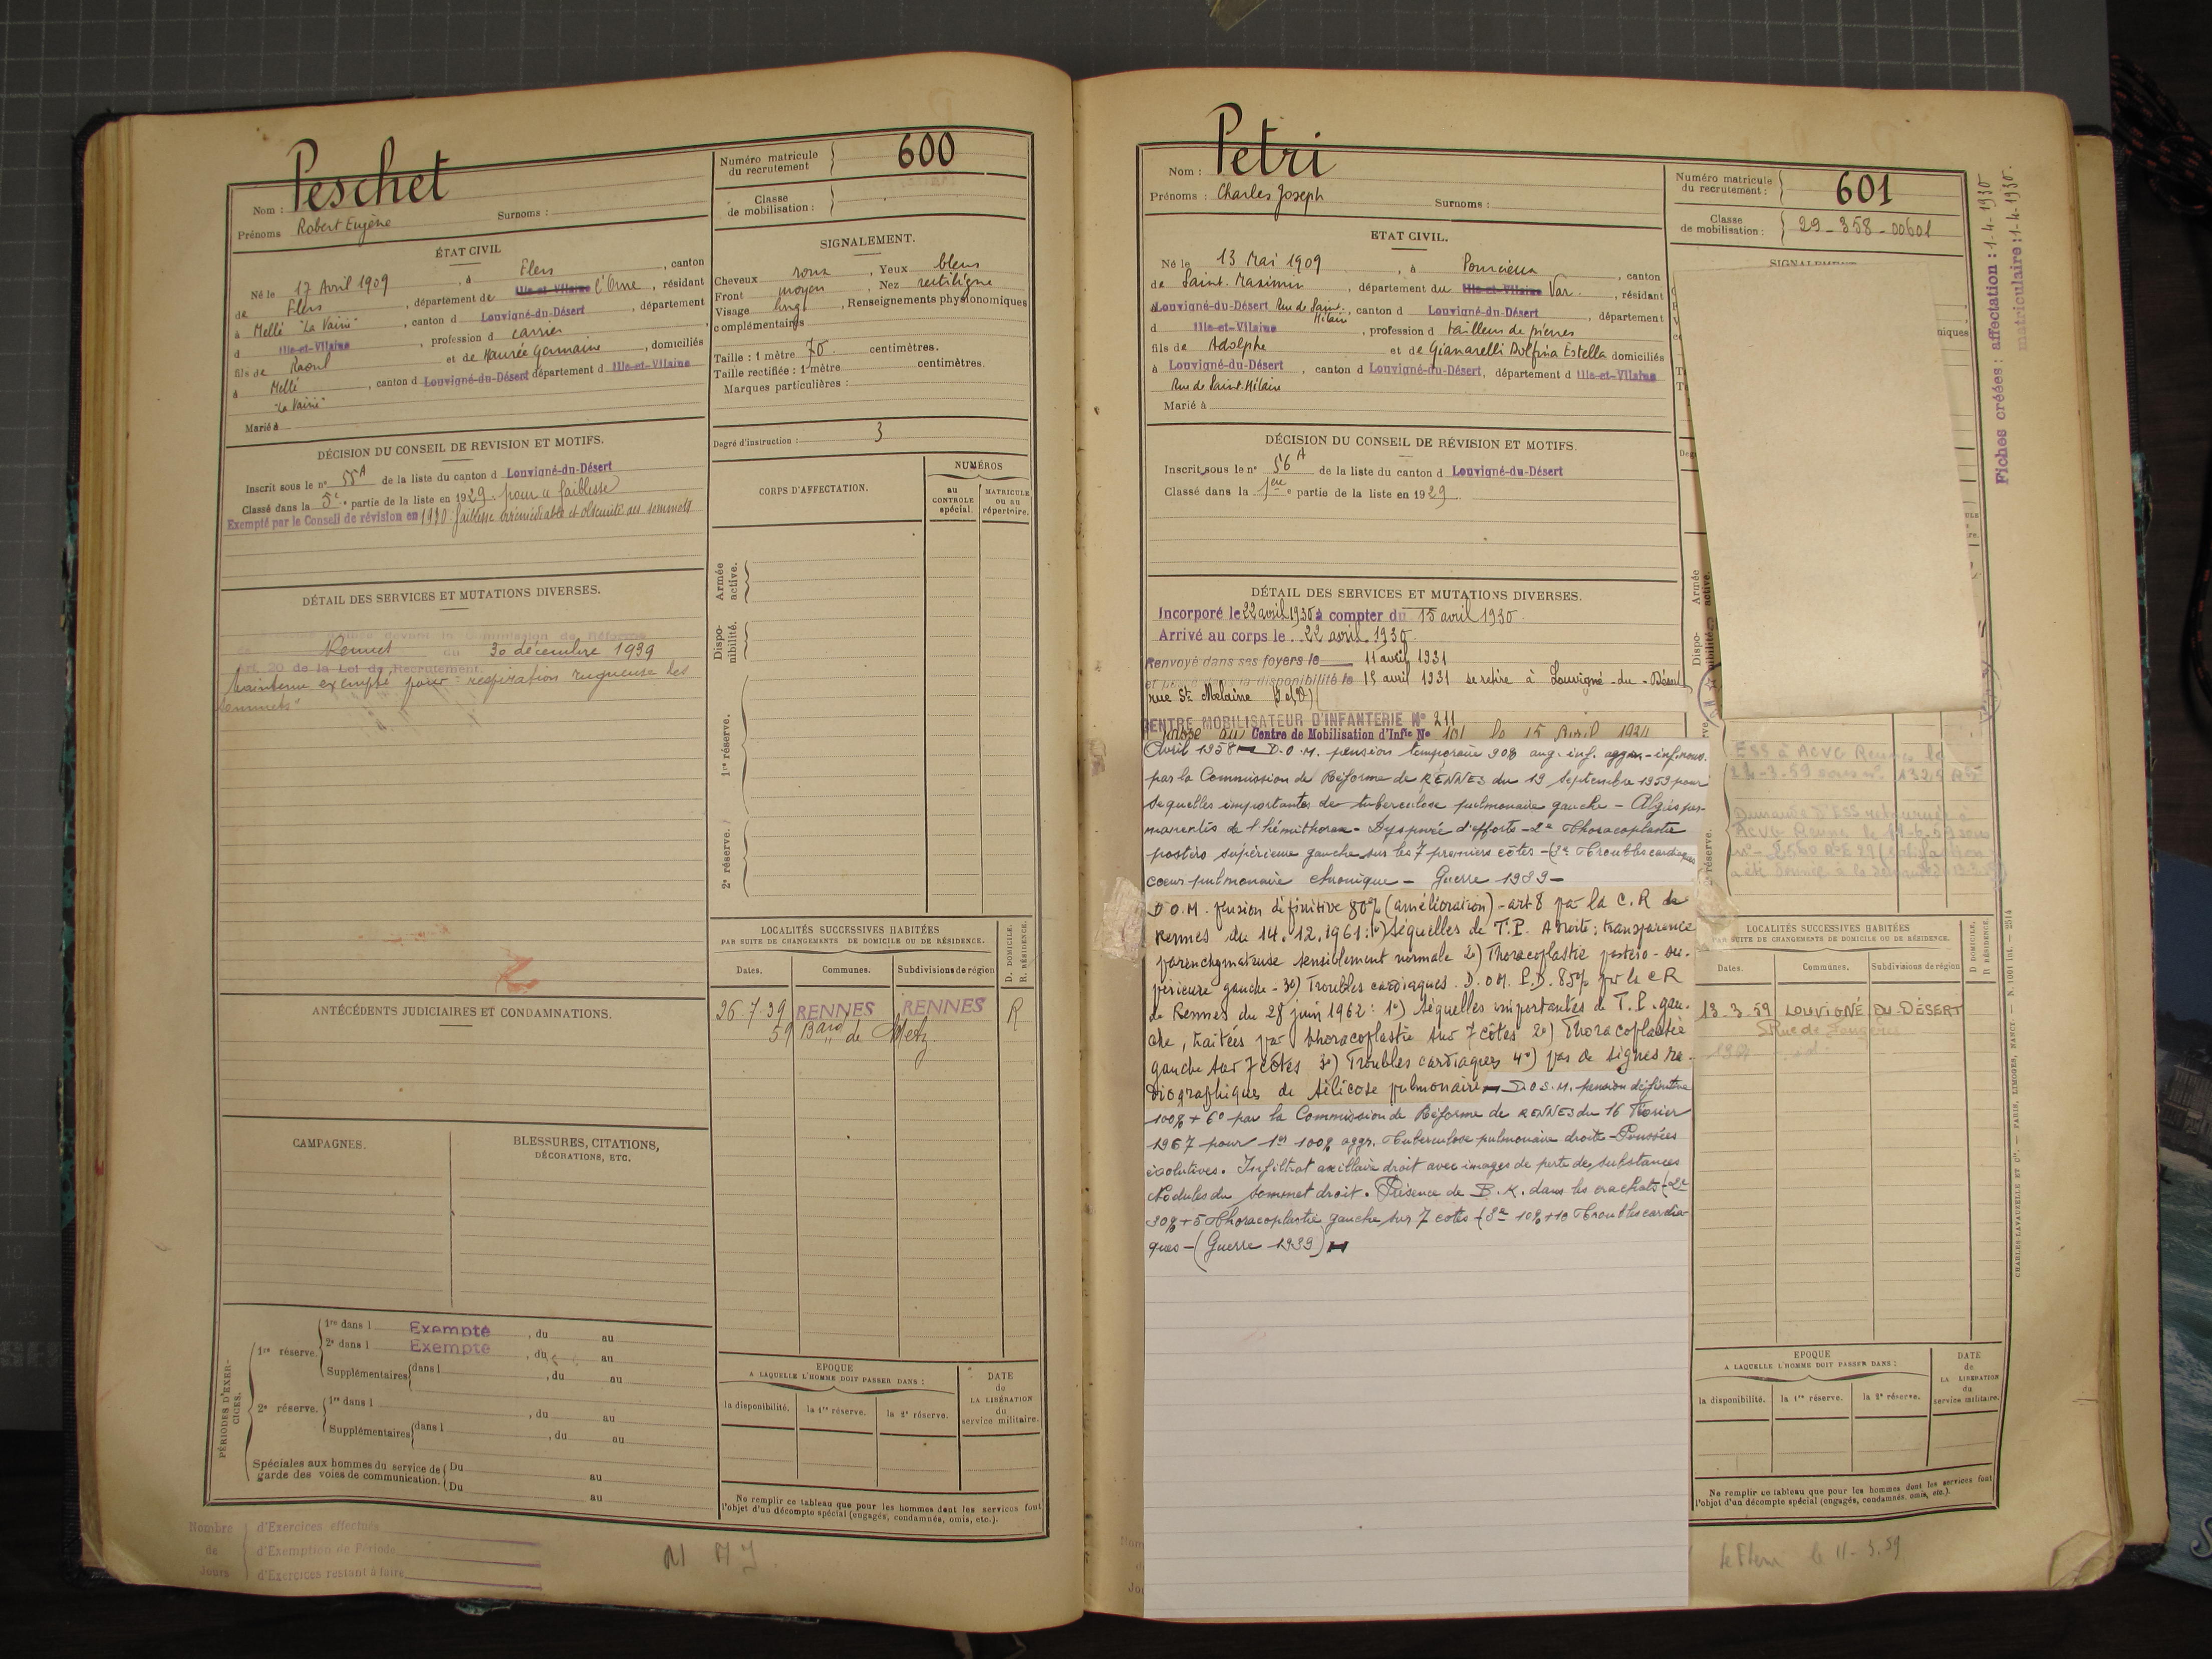 Peschet
Nom :
Prénoms Robert Eugène Surnoms :
Numéro matricule du recrutement 600
Classe de mobilisation :
ÉTAT CIVIL
Né le 17 Avril 1909, à Flers, canton
de Flers, département de Ille-et-Vilaine l'Orne, résidant
à Mellé "La Vairie", canton d Louvigné-du-Désert, département
d Ille-et-Vilaine, profession d carrier
fils de Raoul et de Maurée Germaine, domiciliés
à Mellé, canton d Louvigné-du-Désert département d Ille-et-Vilaine
"La Vairie"
Marié à
SIGNALEMENT.
Cheveux roux, Yeux bleus
Front moyen, Nez rectiligne
Visage long, Renseignements physionomiques
complémentaires
Taille : 1 mètre 70 centimètres.
Taille rectifiée : 1 mètre centimètres.
Marques particulières :
Degré d'instruction : 3
DÉCISION DU CONSEIL DE REVISION ET MOTIFS.
Inscrit sous le n° 55A de la liste du canton d Louvigné-du-Désert
Classé dans la 5e partie de la liste en 1929. pour faiblesse
Exempté par le Conseil de révision en 1930 faiblesse irrémédiable et obscurité des sommets
CORPS D'AFFECTATION.
NUMÉROS
au CONTROLE spécial.
MATRICULE ou au répertoire.
Armée active.
Disponibilité.
1re réserve.
2e réserve.
DÉTAIL DES SERVICES ET MUTATIONS DIVERSES.
devant la Commission de Réforme
de Rennes du 30 décembre 1939
Art. 20 de la Loi de Recrutement
Maintenu exempté pour "respiration rugueuse des
sommets"
ANTÉCÉDENTS JUDICIAIRES ET CONDAMNATIONS.
LOCALITÉS SUCCESSIVES HABITÉES
PAR SUITE DE CHANGEMENTS DE DOMICILE OU DE RÉSIDENCE.
D. DOMICILE.
R. RÉSIDENCE.
Dates. Communes. Subdivisions de région
26.7.39 RENNES RENNES R
59 Bard de Metz
CAMPAGNES.
BLESSURES, CITATIONS,
DÉCORATIONS, ETC.
PÉRIODES D'EXERCICES.
1re réserve.
1re dans l Exempté, du au
2e dans l Exempté, du au
Supplémentaires dans l, du au
2e réserve.
1re dans l, du au
Supplémentaires dans l, du au
Spéciales aux hommes du service de garde des voies de communication.
Du au
Du au
EPOQUE
A LAQUELLE L'HOMME DOIT PASSER DANS :
la disponibilité. la 1re réserve. la 2e réserve.
DATE de LA LIBÉRATION du service militaire.
Ne remplir ce tableau que pour les hommes dont les services font
l'objet d'un décompte spécial (engagés, condamnés, omis, etc.).
Nombre de Jours
d'Exercices effectués
d'Exemption de Période
d'Exercices restant à faire
Petri
Nom :
Prénoms : Charles Joseph Surnoms :
Numéro matricule du recrutement : 601
Classe de mobilisation : 29-358-00601
Fiches créées : affectation : 1-4-1930
matriculaire : 1-4-1930.
ETAT CIVIL.
Né le 13 Mai 1909, à Pourcieux, canton
de Saint. Maximin, département du Ille-et-Vilaine Var., résidant
à Louvigné-du-Désert Rue de Saint. Hilaire, canton d Louvigné-du-Désert, département
d Ille-et-Vilaine, profession d tailleur de pierres
fils de Adolphe et de Gianarelli Dolfina Estella domiciliés
à Louvigné-du-Désert, canton d Louvigné-du-Désert, département d Ille-et-Vilaine
Rue de Saint. Hilaire
Marié à
SIGNALEMENT
DÉCISION DU CONSEIL DE RÉVISION ET MOTIFS.
Inscrit sous le n° 56A de la liste du canton d Louvigné-du-Désert
Classé dans la 1ère partie de la liste en 1929.
DÉTAIL DES SERVICES ET MUTATIONS DIVERSES.
Incorporé le 22 avril 1930 à compter du 15 avril 1930
Arrivé au corps le 22 avril 1930
Renvoyé dans ses foyers le 11 avril 1931
et passé dans la disponibilité le 15 avril 1931 se retire à Louvigné-du-Désert
rue St Melaine (I et V)
CENTRE MOBILISATEUR D'INFANTERIE N° 211
Centre de Mobilisation d'Infie N° 101 le 15 Avril
Avril 1958 - D.O.M. pension temporaire 90% aug. inf. aggr. - inf. nouv.
par la Commission de Réforme de RENNES du 19 Septembre 1959 pour
séquelles importantes de tuberculose pulmonaire gauche - Algies per-
manentes de l'hémithorax - Dyspnée d'efforts - 2° Thoracoplastie
postéro supérieure gauche sur les 7 premiers côtes - (3° Troubles cardiaques
cœur pulmonaire chronique - Guerre 1939 -
D.O.M. pension définitive 80% (amélioration) - art 8 par la C.R de
Rennes du 14.12.1961 : 1°) Séquelles de T.P. A droite : transparence
parenchymateuse sensiblement normale 2°) Thoracoplastie postéro-su-
périeure gauche - 3°) Troubles cardiaques. D.O.M. P.D. 85% par la C R
de Rennes du 28 juin 1962 : 1°) Séquelles importantes de T.P. gau-
che, traitées par thoracoplastie sur 7 côtes 2°) Thoracoplastie
gauche sur 7 côtes 3°) Troubles cardiaques 4°) pas de signes ra-
diographiques de silicose pulmonaire - D.O.S.M. pension définitive
100% + 6° par la Commission de Réforme de RENNES du 16 Février
1967 pour 1°) 100% aggr. Tuberculose pulmonaire droite - Poussées
évolutives. Infiltrat axillaire droit avec images de perte de substances
Nodules du sommet droit. Présence de B.K. dans les crachats - (2°
30% + 5 Thoracoplastie gauche sur 7 côtes - (3° 10% + 10 Troubles cardia-
ques - (Guerre 1939)
Armée active.
Disponibilité.
ESS à ACVG Rennes le
Demande D'ESS retournée à
ACVG Rennes
LOCALITÉS SUCCESSIVES HABITÉES
PAR SUITE DE CHANGEMENTS DE DOMICILE OU DE RÉSIDENCE.
D DOMICILE.
R RÉSIDENCE
Dates. Communes. Subdivisions de région
13-3-59 LOUVIGNÉ DU DÉSERT
5 Rue de Fougères
EPOQUE
A LAQUELLE L'HOMME DOIT PASSER DANS :
la disponibilité. la 1re réserve. la 2e réserve.
DATE de LA LIBÉRATION du service militaire.
Ne remplir ce tableau que pour les hommes dont les services font
l'objet d'un décompte spécial (engagés, condamnés, omis, etc.).
CHARLES-LAVAUZELLE ET Cie. — PARIS, LIMOGES, NANCY. — N. 1001 int. — 2514
le 11-3.59